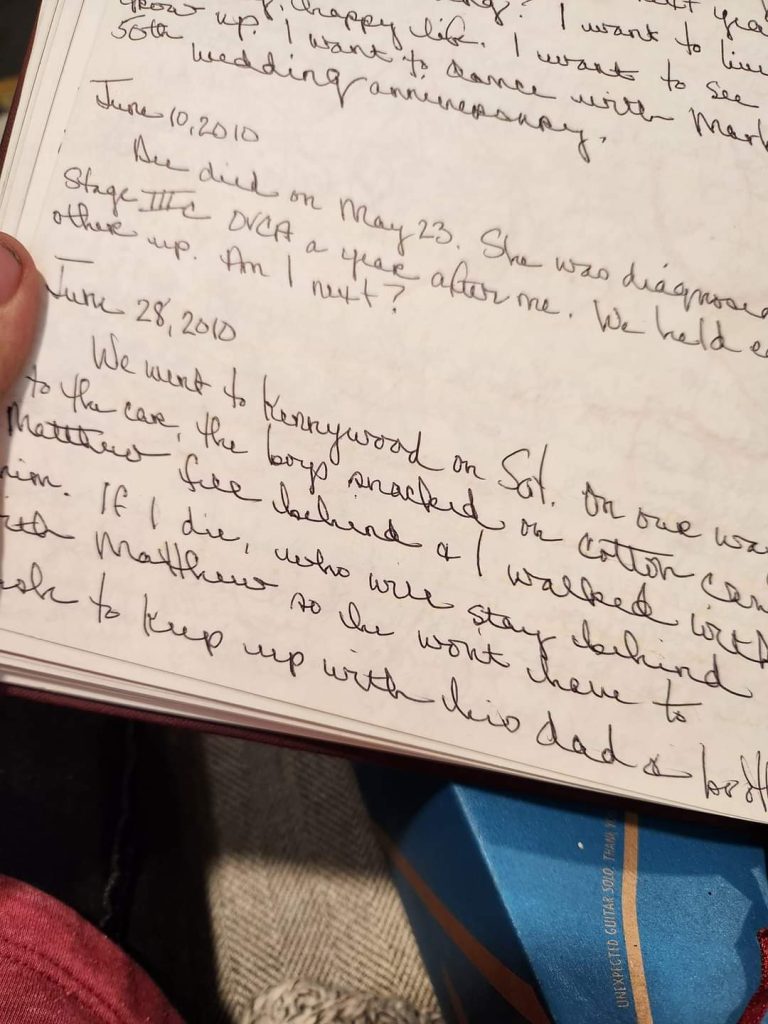 happy life. I want to live
grow up. I want to see
50th wedding anniversary. I want to dance with Mark
June 10, 2010
Dee died on May 23. She was diagnosed
Stage IIIc OVCA a year after me. We held ea
other up. Am I next?
June 28, 2010
We went to Kennywood on Sat. On our wa
to the car, the boys snacked on cotton can
Matthew fell behind & I walked with
him. If I die, who will stay behind
with Matthew so he won't have to
to keep up with his dad & broth
UNEXPECTED GUITAR SOLO. THANK